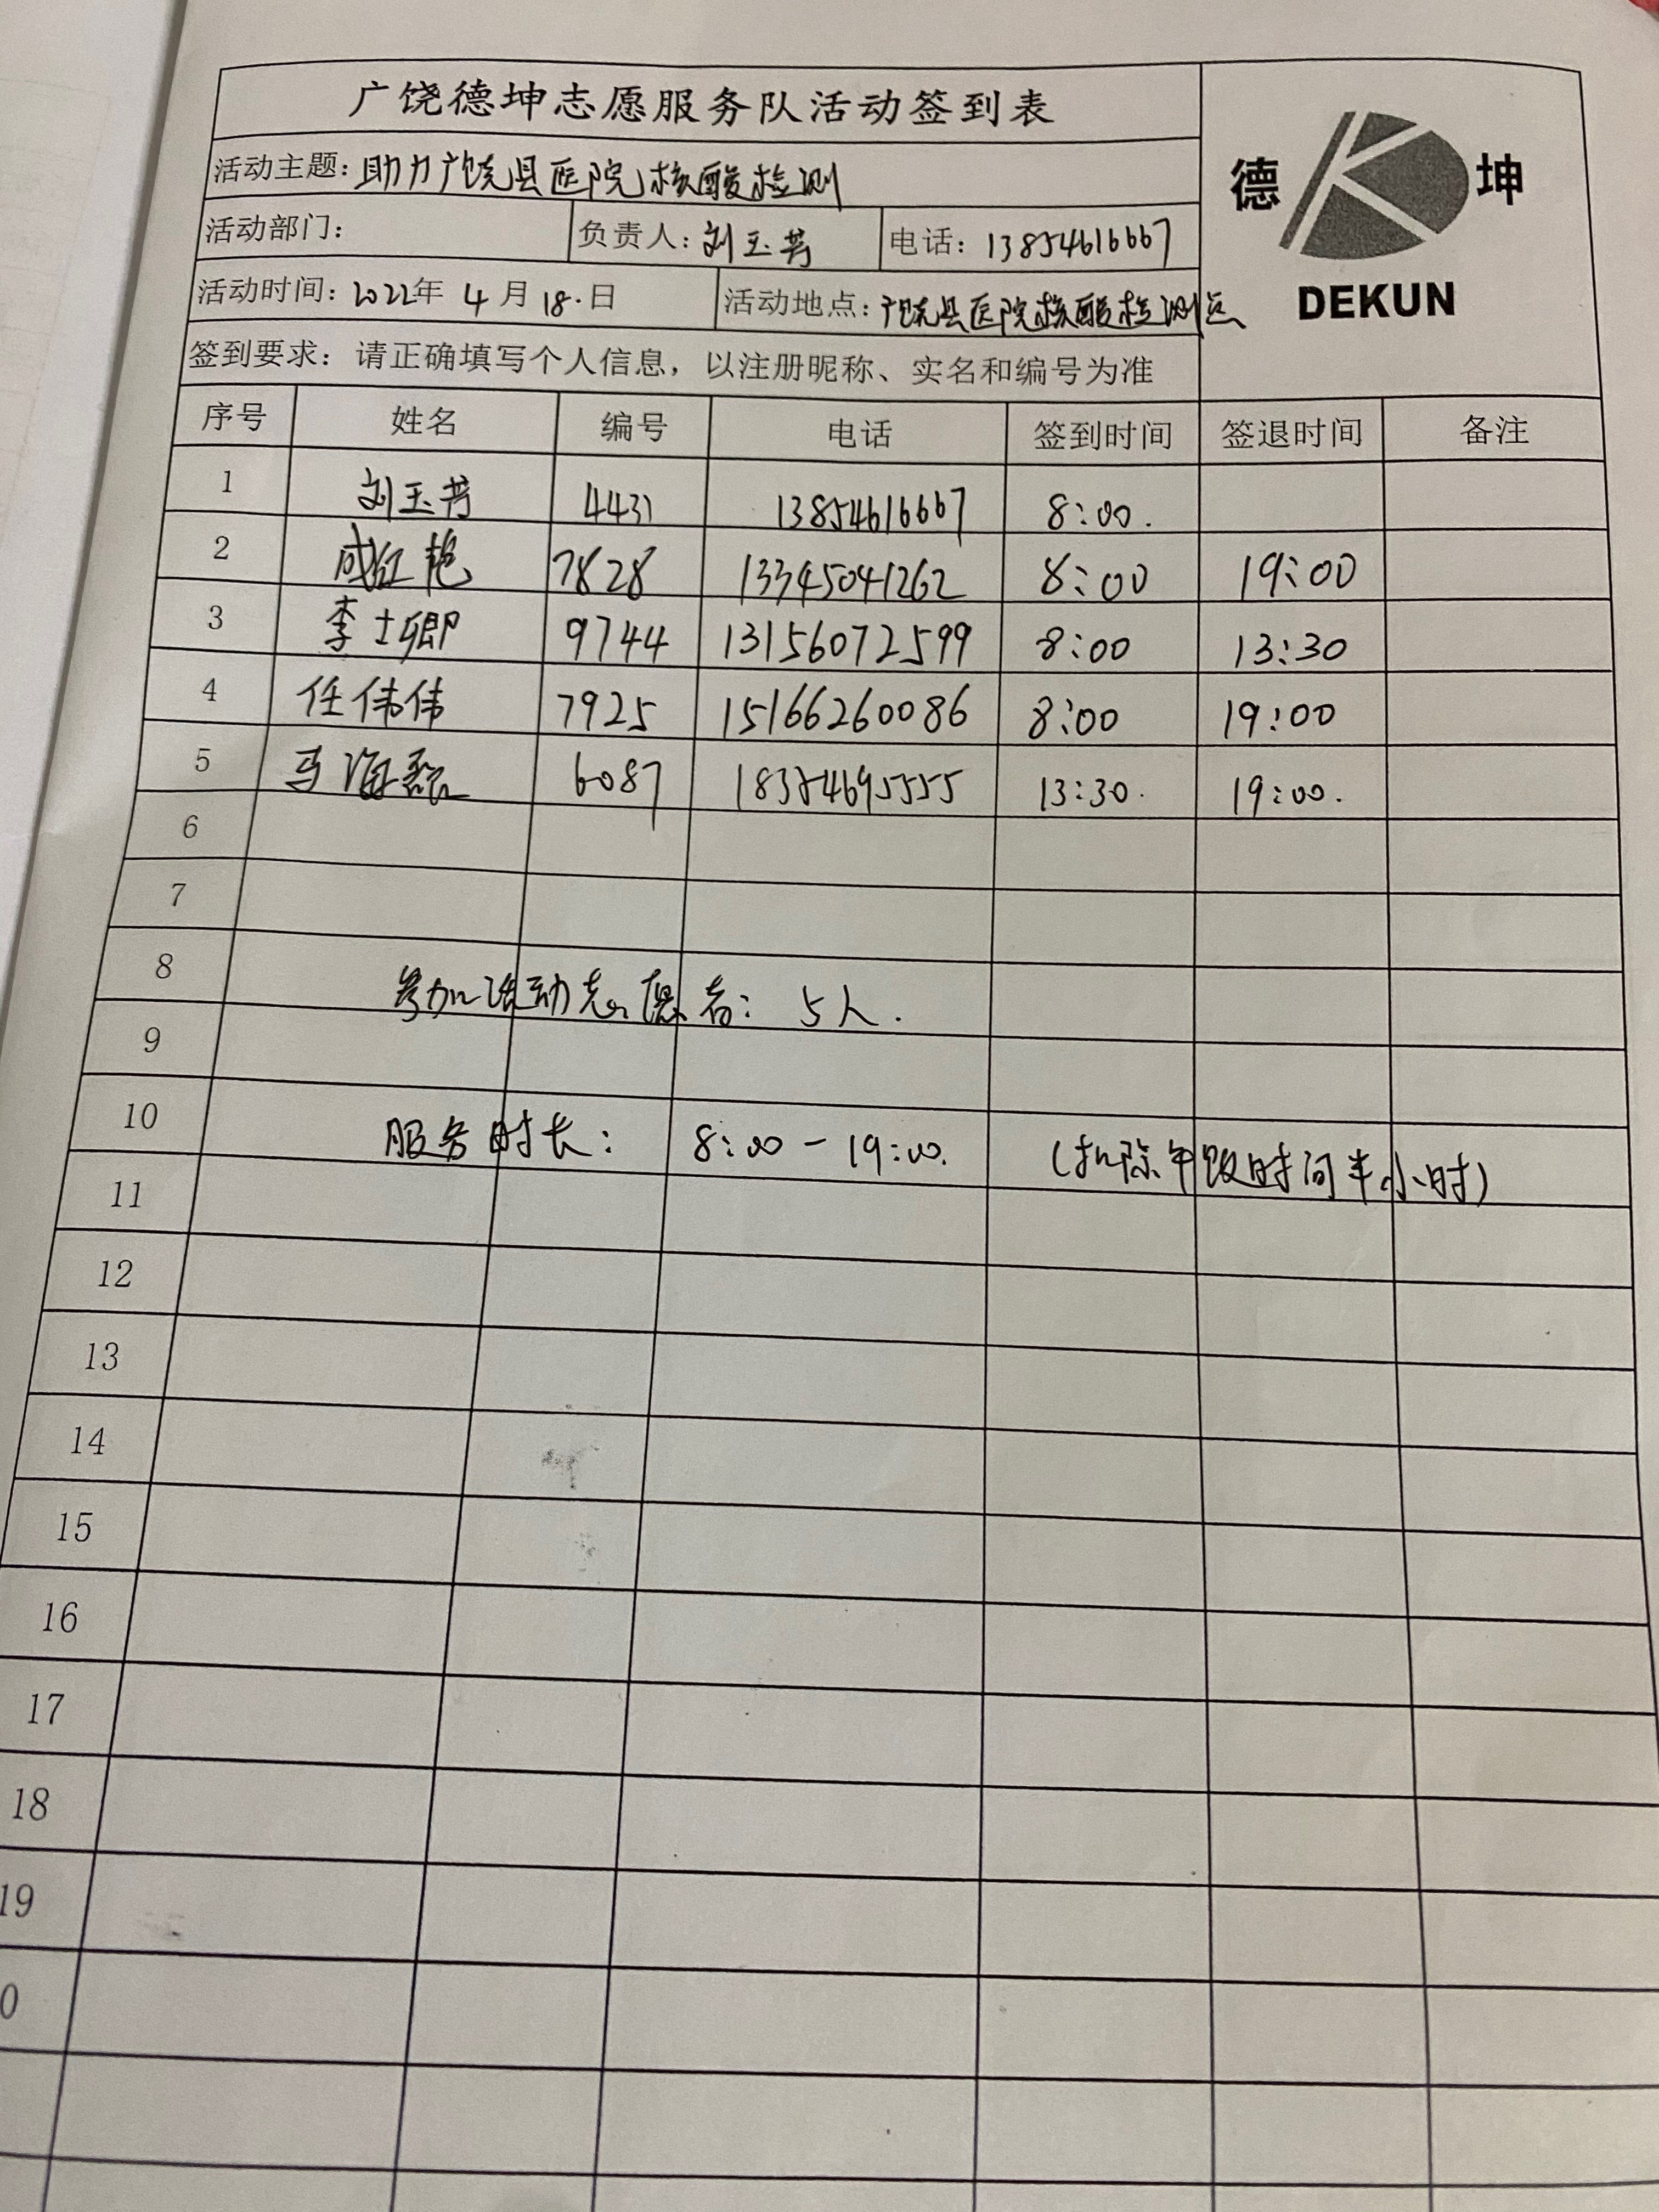 广饶德坤志愿服务队活动签到表
德 坤
DEKUN
活动主题：助力广饶县医院核酸检测
活动部门： 负责人：刘玉芳 电话：13854616667
活动时间：2022年 4 月 18.日 活动地点：广饶县医院核酸检测点
签到要求：请正确填写个人信息，以注册昵称、实名和编号为准
序号 姓名 编号 电话 签到时间 签退时间 备注
1 刘玉芳 4431 13854616667 8:00.
2 成红艳 7828 13345041262 8:00 19:00
3 李士卿 9744 13156072599 8:00 13:30
4 任伟伟 7925 15166260086 8:00 19:00
5 马海磊 6087 18354695555 13:30. 19:00.
6
7
8 参加活动志愿者：5人.
9
10 服务时长：8:00-19:00. (扣除午饭时间半小时)
11
12
13
14
15
16
17
18
19
0